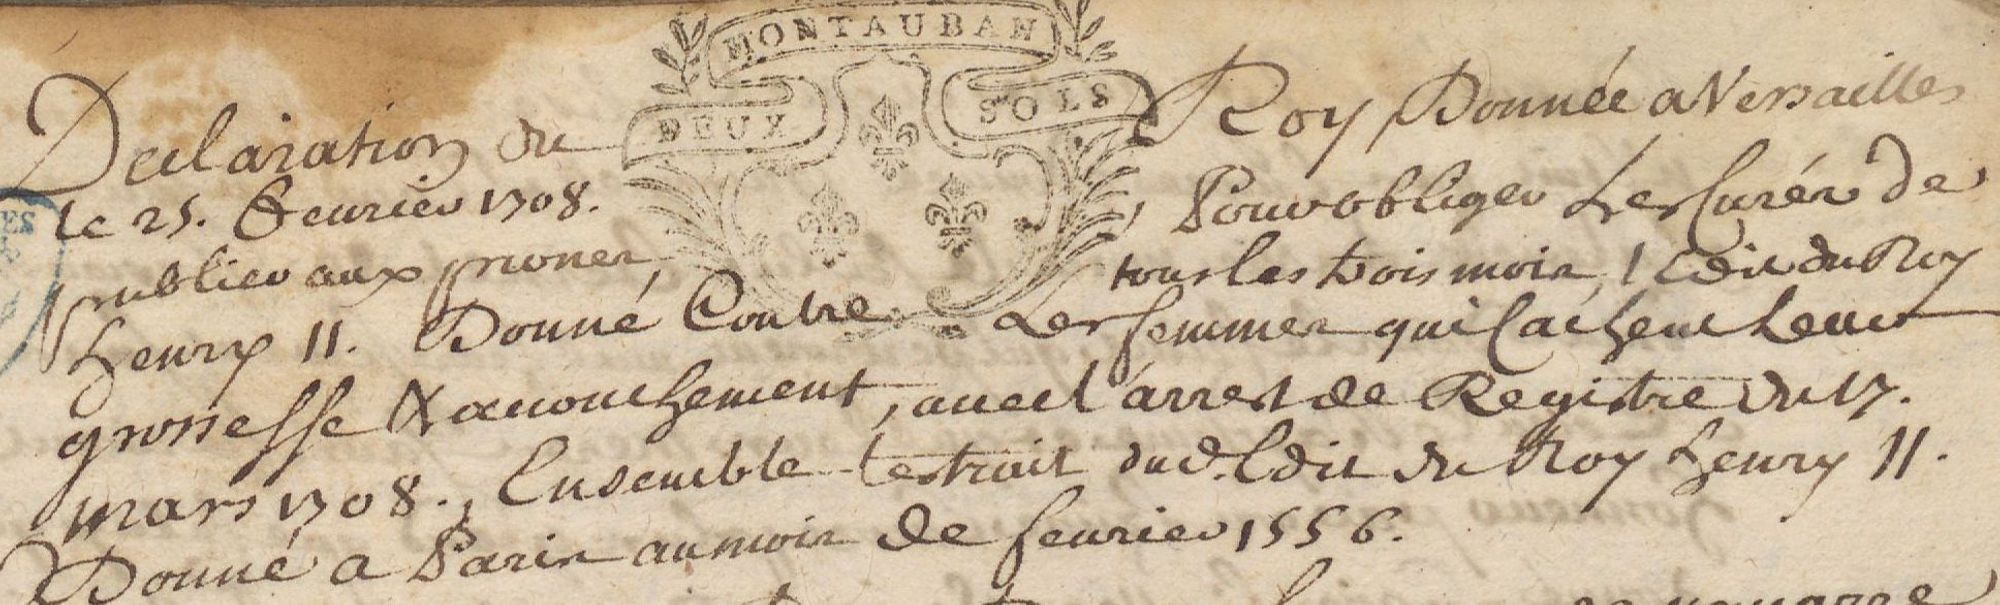 MONTAUBAN
DEUX SOLS
Declaration du Roy Donnée a Versailles
le 25. feurier 1708. Pour obliger Les Curés de
publier aux prones, tous les trois mois, l'Edit du Roy
Henry II. Donné Contre Les femmes qui Cachent Leur
grossesse & acouchement, auec l'arrest de Registre du 17.
mars 1708., Ensemble l'extrait dud. Edit du Roy Henry II.
Donné a Paris au mois de feurier 1556.